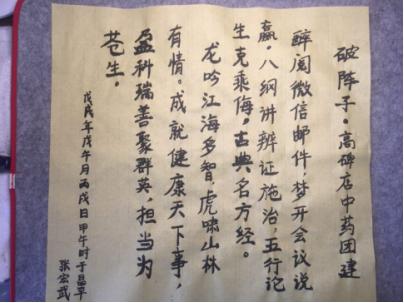 破阵子。高碑店中药团建
醉阅微信邮件，梦开会议说
赢。八纲讲辨证施治，五行论
生克乘侮。古典名方经。
龙吟江海多智，虎啸山林
有情。成就健康天下事，
盈科瑞善聚群英，担当为
苍生。
戊戌年戊午月丙戌日甲午时于昌平
张宏武